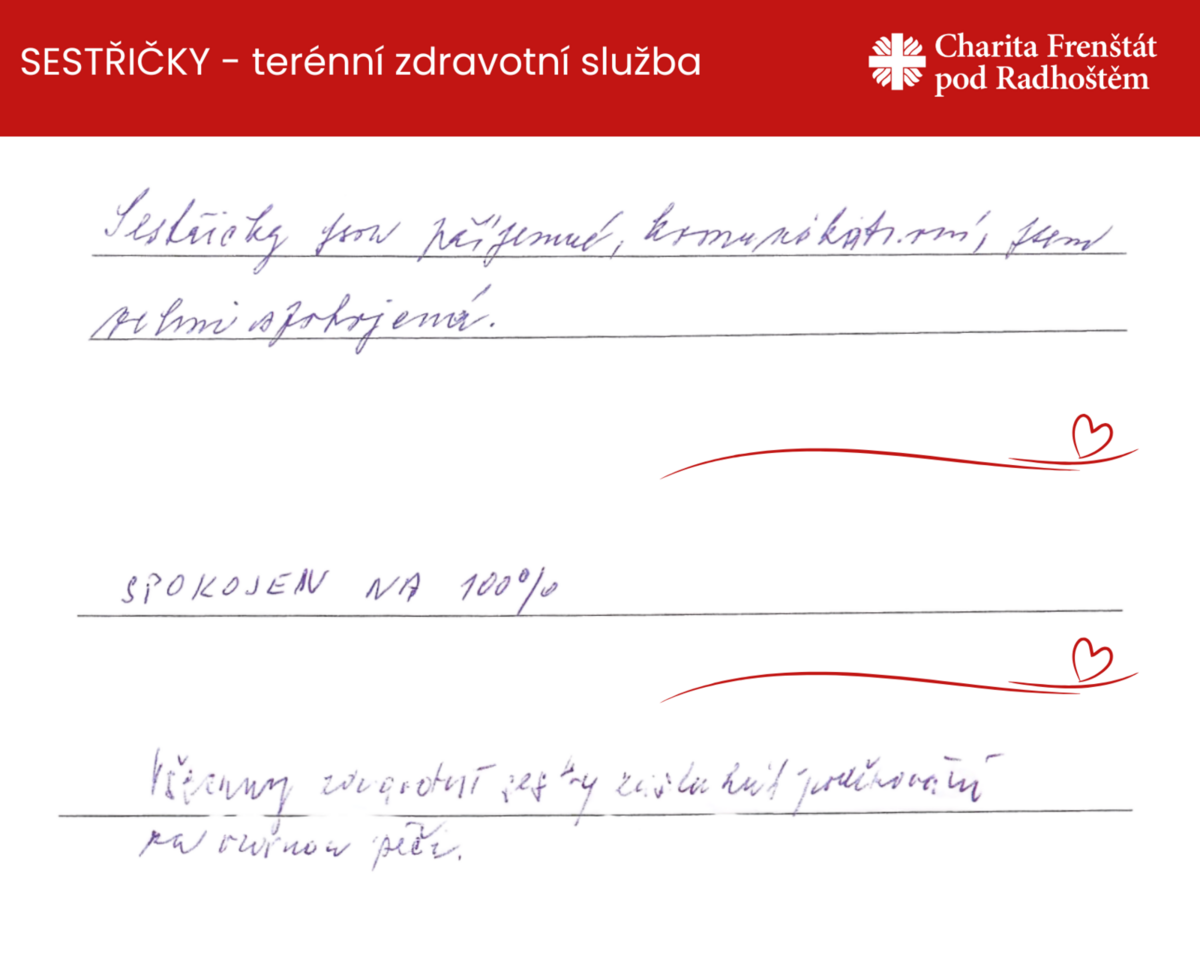 SESTŘIČKY - terénní zdravotní služba
Charita Frenštát
pod Radhoštěm
Sestřičky jsou příjemné, komunikativní, jsem
velmi spokojená.
SPOKOJEN NA 100%
Všechny zdravotní sestry zaslouží poděkování
za péči.